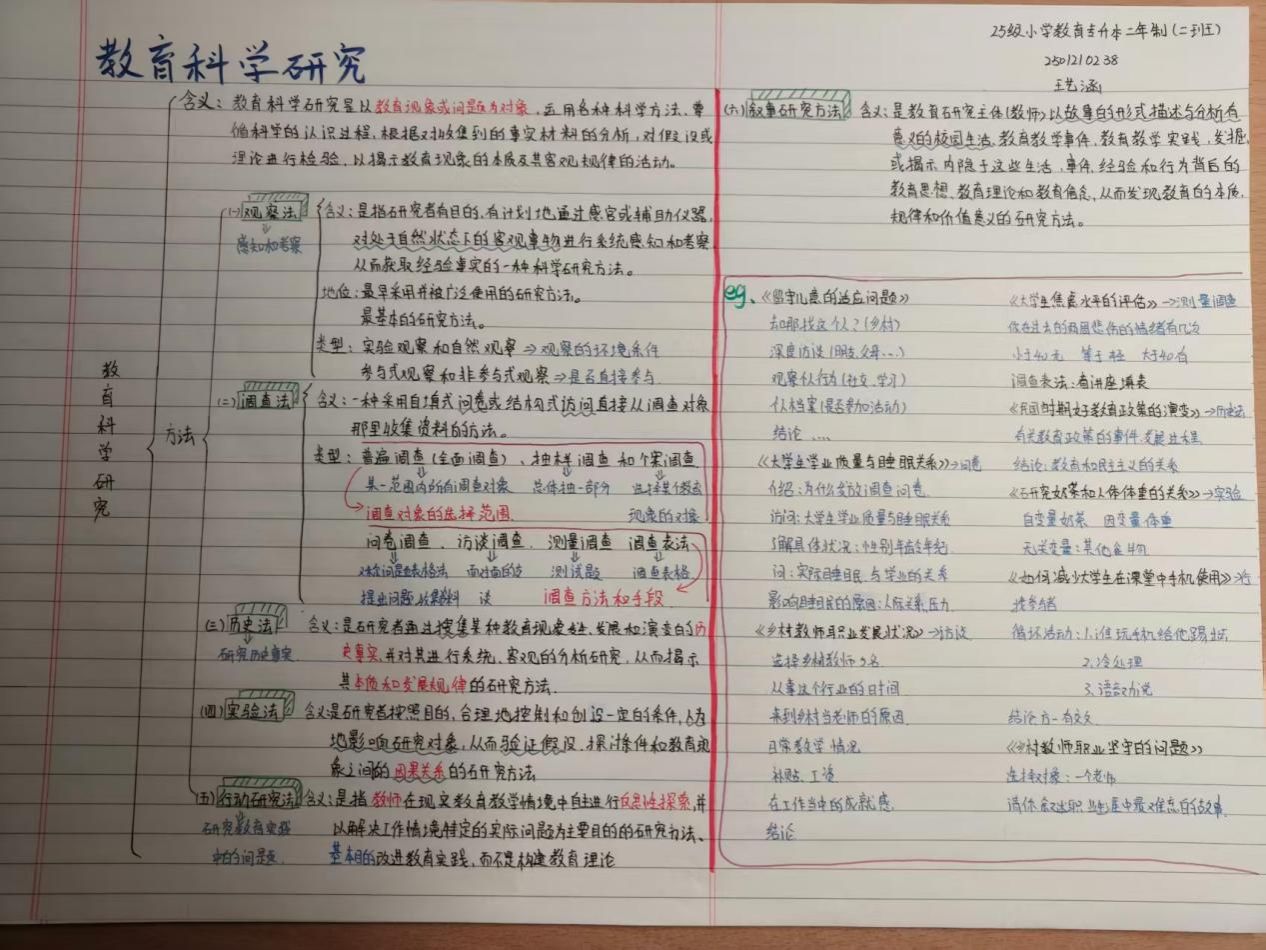 教育科学研究
25级小学教育专升本二年制(二班)
2501210238
王艺涵
教育科学研究
含义：教育科学研究是以教育现象或问题为对象，运用各种科学方法、遵
循科学的认识过程，根据对收集到的事实材料的分析，对假设或
理论进行检验，以揭示教育现象的本质及其客观规律的活动。
方法
(一)观察法
感知和考察
含义：是指研究者有目的、有计划地通过感官或辅助仪器，
对处于自然状态下的客观事物进行系统感知和考察，
从而获取经验事实的一种科学研究方法。
地位：最早采用并被广泛使用的研究方法。
最基本的研究方法。
类型：实验观察和自然观察⇒观察的环境条件
参与式观察和非参与式观察⇒是否直接参与
(二)调查法
含义：一种采用自填式问卷或结构式访问直接从调查对象
那里收集资料的方法。
类型：普遍调查(全面调查)、抽样调查和个案调查
某一范围内所有调查对象 总体抽一部分 选择某个教育
调查对象的选择范围 现象的对象
问卷调查、访谈调查、测量调查 调查表法
对称问题表格法 面对面的交 测试题 调查表格
提出问题,收集资料 谈 调查方法和手段
(三)历史法
研究历史事实
含义：是研究者通过搜集某种教育现象发生、发展和演变的历
史事实，并对其进行系统、客观的分析研究，从而揭示
其本质和发展规律的研究方法．
(四)实验法
含义:是研究者按照目的，合理地控制和创设一定的条件，人为
地影响研究对象，从而验证假设，探讨条件和教育现
象之间的因果关系的研究方法
(五)行动研究法
研究教育实践
中的问题
含义：是指教师在现实教育教学情境中自主进行反思性探索，并
以解决工作情境特定的实际问题为主要目的的研究方法、
基本目的改进教育实践，而不是构建教育理论
(六)叙事研究方法
含义：是教育研究主体(教师)以故事的形式描述与分析有
意义的校园生活、教育教学事件，教育教学实践，发掘
或揭示内隐于这些生活、事件、经验和行为背后的
教育思想、教育理论和教育信念，从而发现教育的本质、
规律和价值意义的研究方法。
eg.
《留守儿童的适应问题》
去哪找这个人？(乡村)
深度访谈(朋友、父母…)
观察个人行为(社交、学习)
个人档案(是否参加活动)
结论 …
《大学生学业质量与睡眠关系》→问卷
介绍：为什么发放调查问卷
访问：大学生学业质量与睡眠关系
了解具体状况：性别年龄年纪
问：实际睡眠与学业的关系
影响睡眠的原因：人际关系,压力
《乡村教师职业发展状况》→访谈
选择乡村教师5名
从事这个行业的时间
来到乡村当老师的原因
日常教学情况
补贴、工资
在工作当中的成就感
结论
《大学生焦虑水平的评估》→测量调查
你在过去的两周悲伤的情绪有几次
小于40无 等于轻 大于40有
调查表法：看讲座填表
《民国时期女子教育政策的演变》→历史法
有关教育政策的事件,发展过程
结论：教育和民主主义的关系
《研究奶茶和人体体重的关系》→实验
自变量:奶茶 因变量:体重
无关变量：其他食物
《如何减少大学生在课堂中手机使用》→行
找参与者
循环活动：1.谁玩手机给他
2.冷处理
3.语言劝说
结论：方一有效
《乡村教师职业坚守的问题》
选择对象：一个老师
请你叙述职业生涯中最难忘的故事